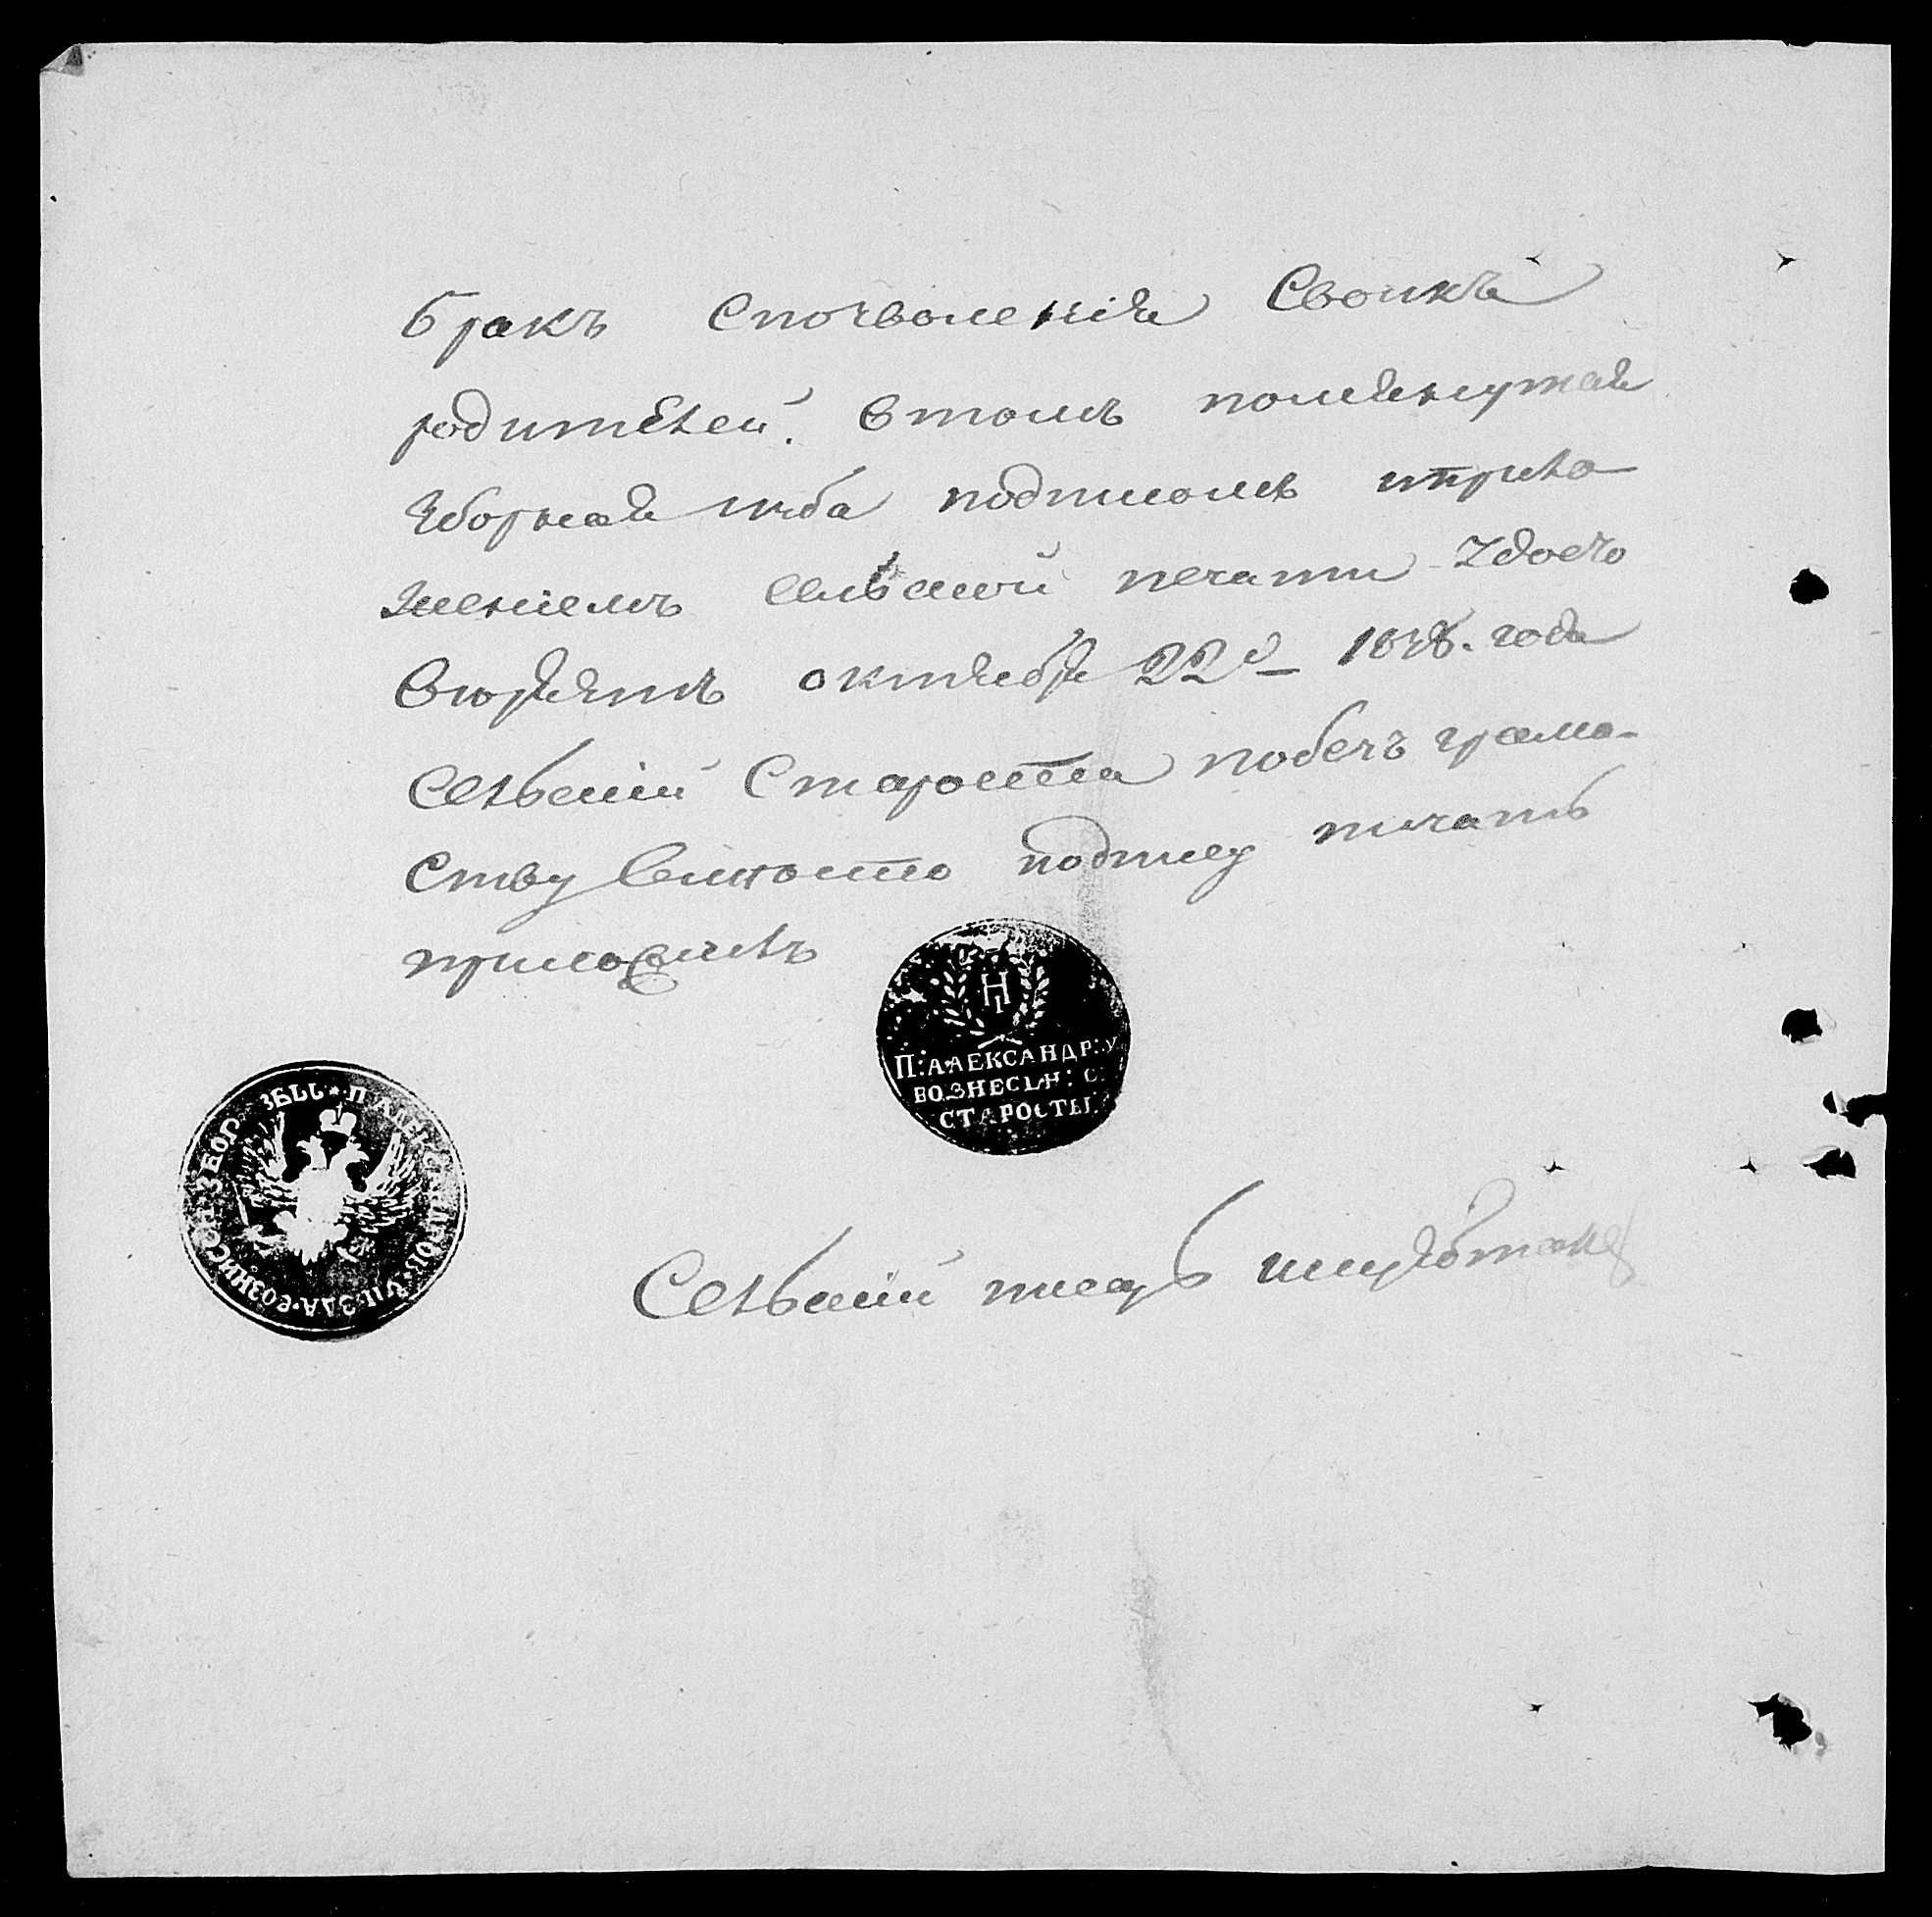 бракъ спозволенія Своихъ
родителей. втомъ помянутая
зборная изба подписомъ иприло
женіемъ сельской печати здесъ
октября 22 д 1848. года
Сельскій Староста побезъ грамо-
ству подпису печать
приложилъ
П: АЛЕКСАНДР: У
ВОЗНЕСЕН: С:
СТАРОСТЫ
Сельскій писарь